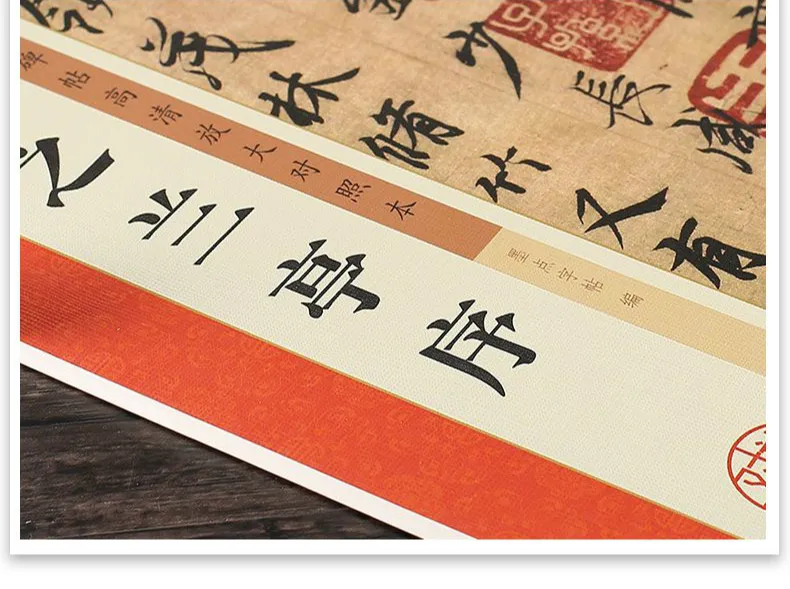 少長咸
茂林脩竹又有
碑帖高清放大对照本
墨点字帖 编
之兰亭序